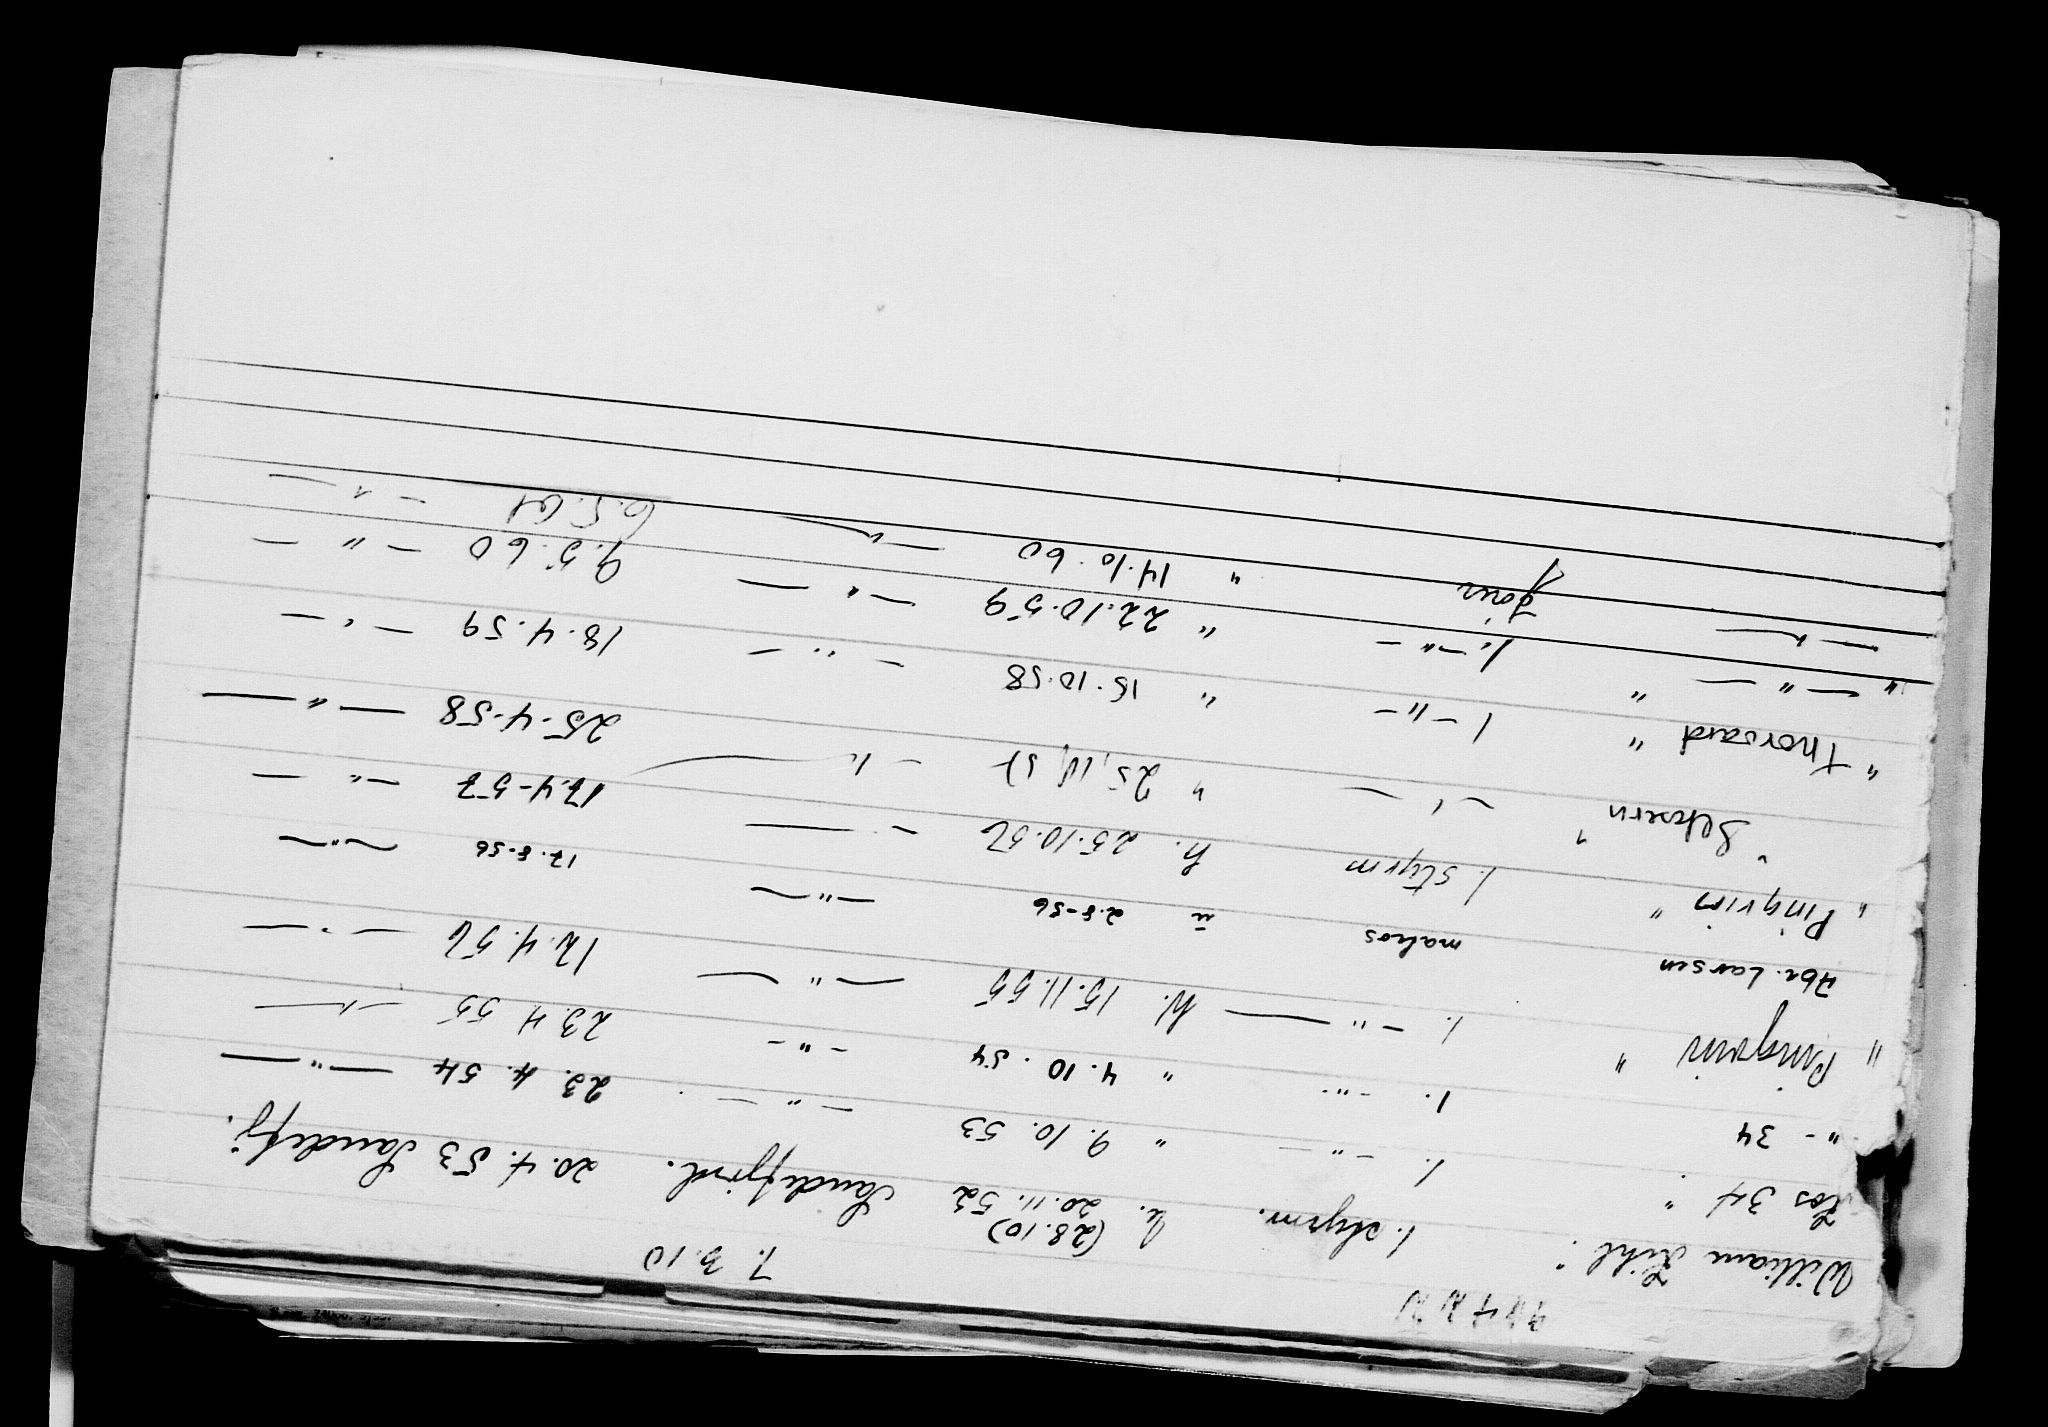 7. 3. 10
William Kihl " 1. styrm. h. (28.10) 20.11.52 Sandefjord. 20.4.53 Sandefj.
Kos 34 " 1. - " - " 9.10.53 - " - 23.4.54 - " -
" - 34 1. - " - " 4.10.54 - " - 23.4.55 - " -
" Pingvin " 1. - " - h. 15.11.55 - " - 12.4.56 - " -
Abr. Larsen matros u 2.8-56 - " - 17.8.56 - " -
" Pingvin " 1. styrm h. 25.10.56 - " - 17.4-57 - " -
" " - " - " 25.10.57 - " - 25-4-58 - " -
" Thorvard " 1 - " - " 15.10.58 - " - 18.4.59 - " -
" - " - " 1. - " - " 22.10.59 - " - 9.5.60 - " -
- " - " 14.10.60 - " - 6.5.61 - " -